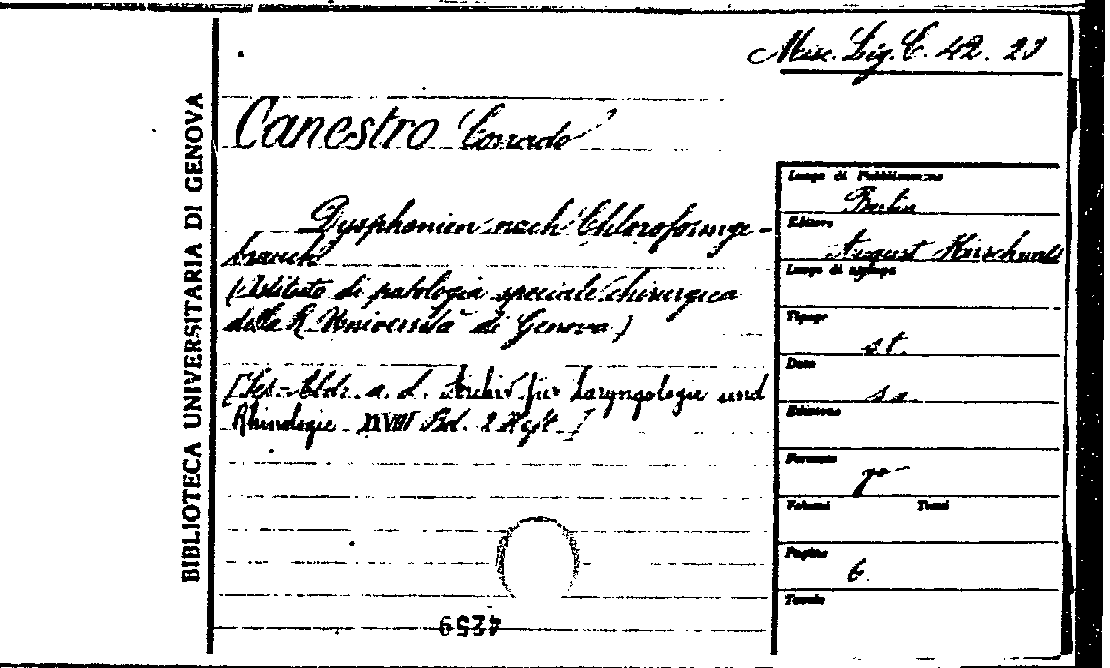 Misc. Lig. C. 42. 23
BIBLIOTECA UNIVERSITARIA DI GENOVA
Canestro Corrado
Dysphonien nach Chloroformge-
brauch
(Istituto di patologia speciale chirurgica
della R. Università di Genova)
[Sep.-Abdr. a. d. Archiv für Laryngologie und
Rhinologie XXVIII Bd. 2 Heft.]
Luogo di Pubblicazione
Berlin
Editore
August Hirschwald
Luogo di stampa
Tipogr
s. t.
Data
s. a.
Edizione
Formato
Volumi Tomi
Pagine
6.
Tavole
4259